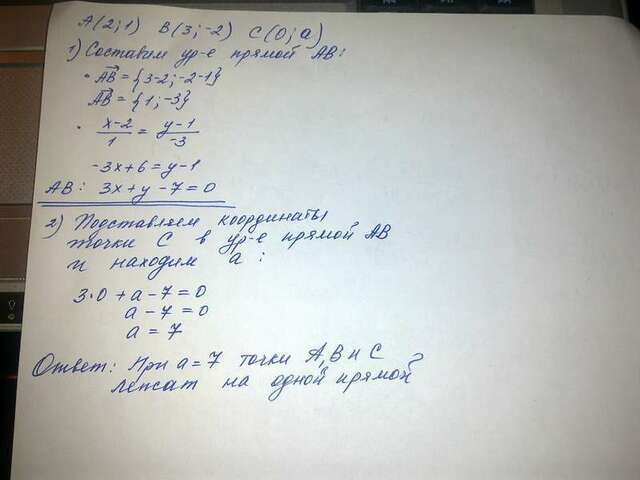 A(2;1) B(3;-2) C(0;a)
1) Составим ур-е прямой AB:
• AB = {3-2; -2-1}
AB = {1; -3}
• x-2/1 = y-1/-3
-3x+6 = y-1
AB: 3x+y-7=0
2) Подставляем координаты
точки C в ур-е прямой AB
и находим a:
3·0+a-7=0
a-7=0
a=7
Ответ: При a=7 точки A, B и C
лежат на одной прямой